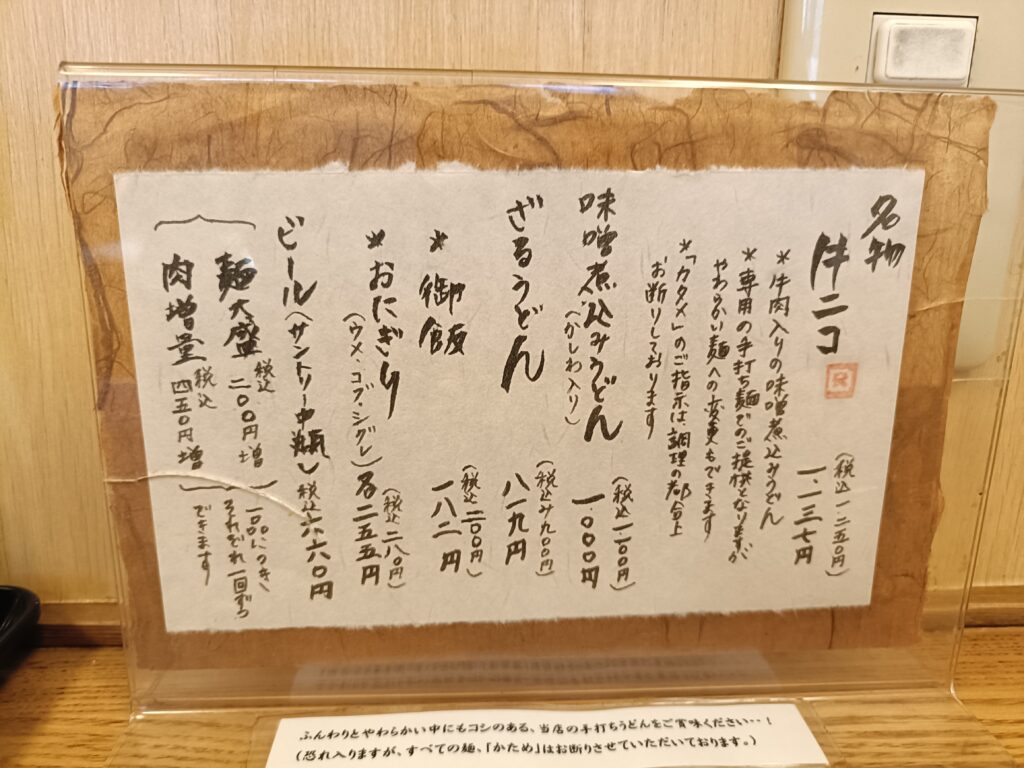 名物
牛ニコ
(税込一二五〇円)
一、一三七円
*牛肉入りの味噌煮込みうどん
*専用の手打ち麺でのご提供となりますが
やわらかい麺への変更もできます
*「カタメ」のご指示は、調理の都合上
お断りしております
味噌煮込みうどん
(かしわ入り)
(税込一一〇〇円)
一、〇〇〇円
ざるうどん
(税込み九〇〇円)
八一九円
*御飯
(税込二〇〇円)
一八二円
*おにぎり
(ウメ・コブ・シグレ)
(税込二八〇円)
各二五五円
ビール(サントリー中瓶)
税込六八〇円
麺大盛 税込二〇〇円増
肉増量 税込四五〇円増
一品につき
それぞれ一回ずつ
できます
ふんわりとやわらかい中にもコシのある、当店の手打ちうどんをご賞味ください・・!
(恐れ入りますが、すべての麺、「かため」はお断りさせていただいております。)